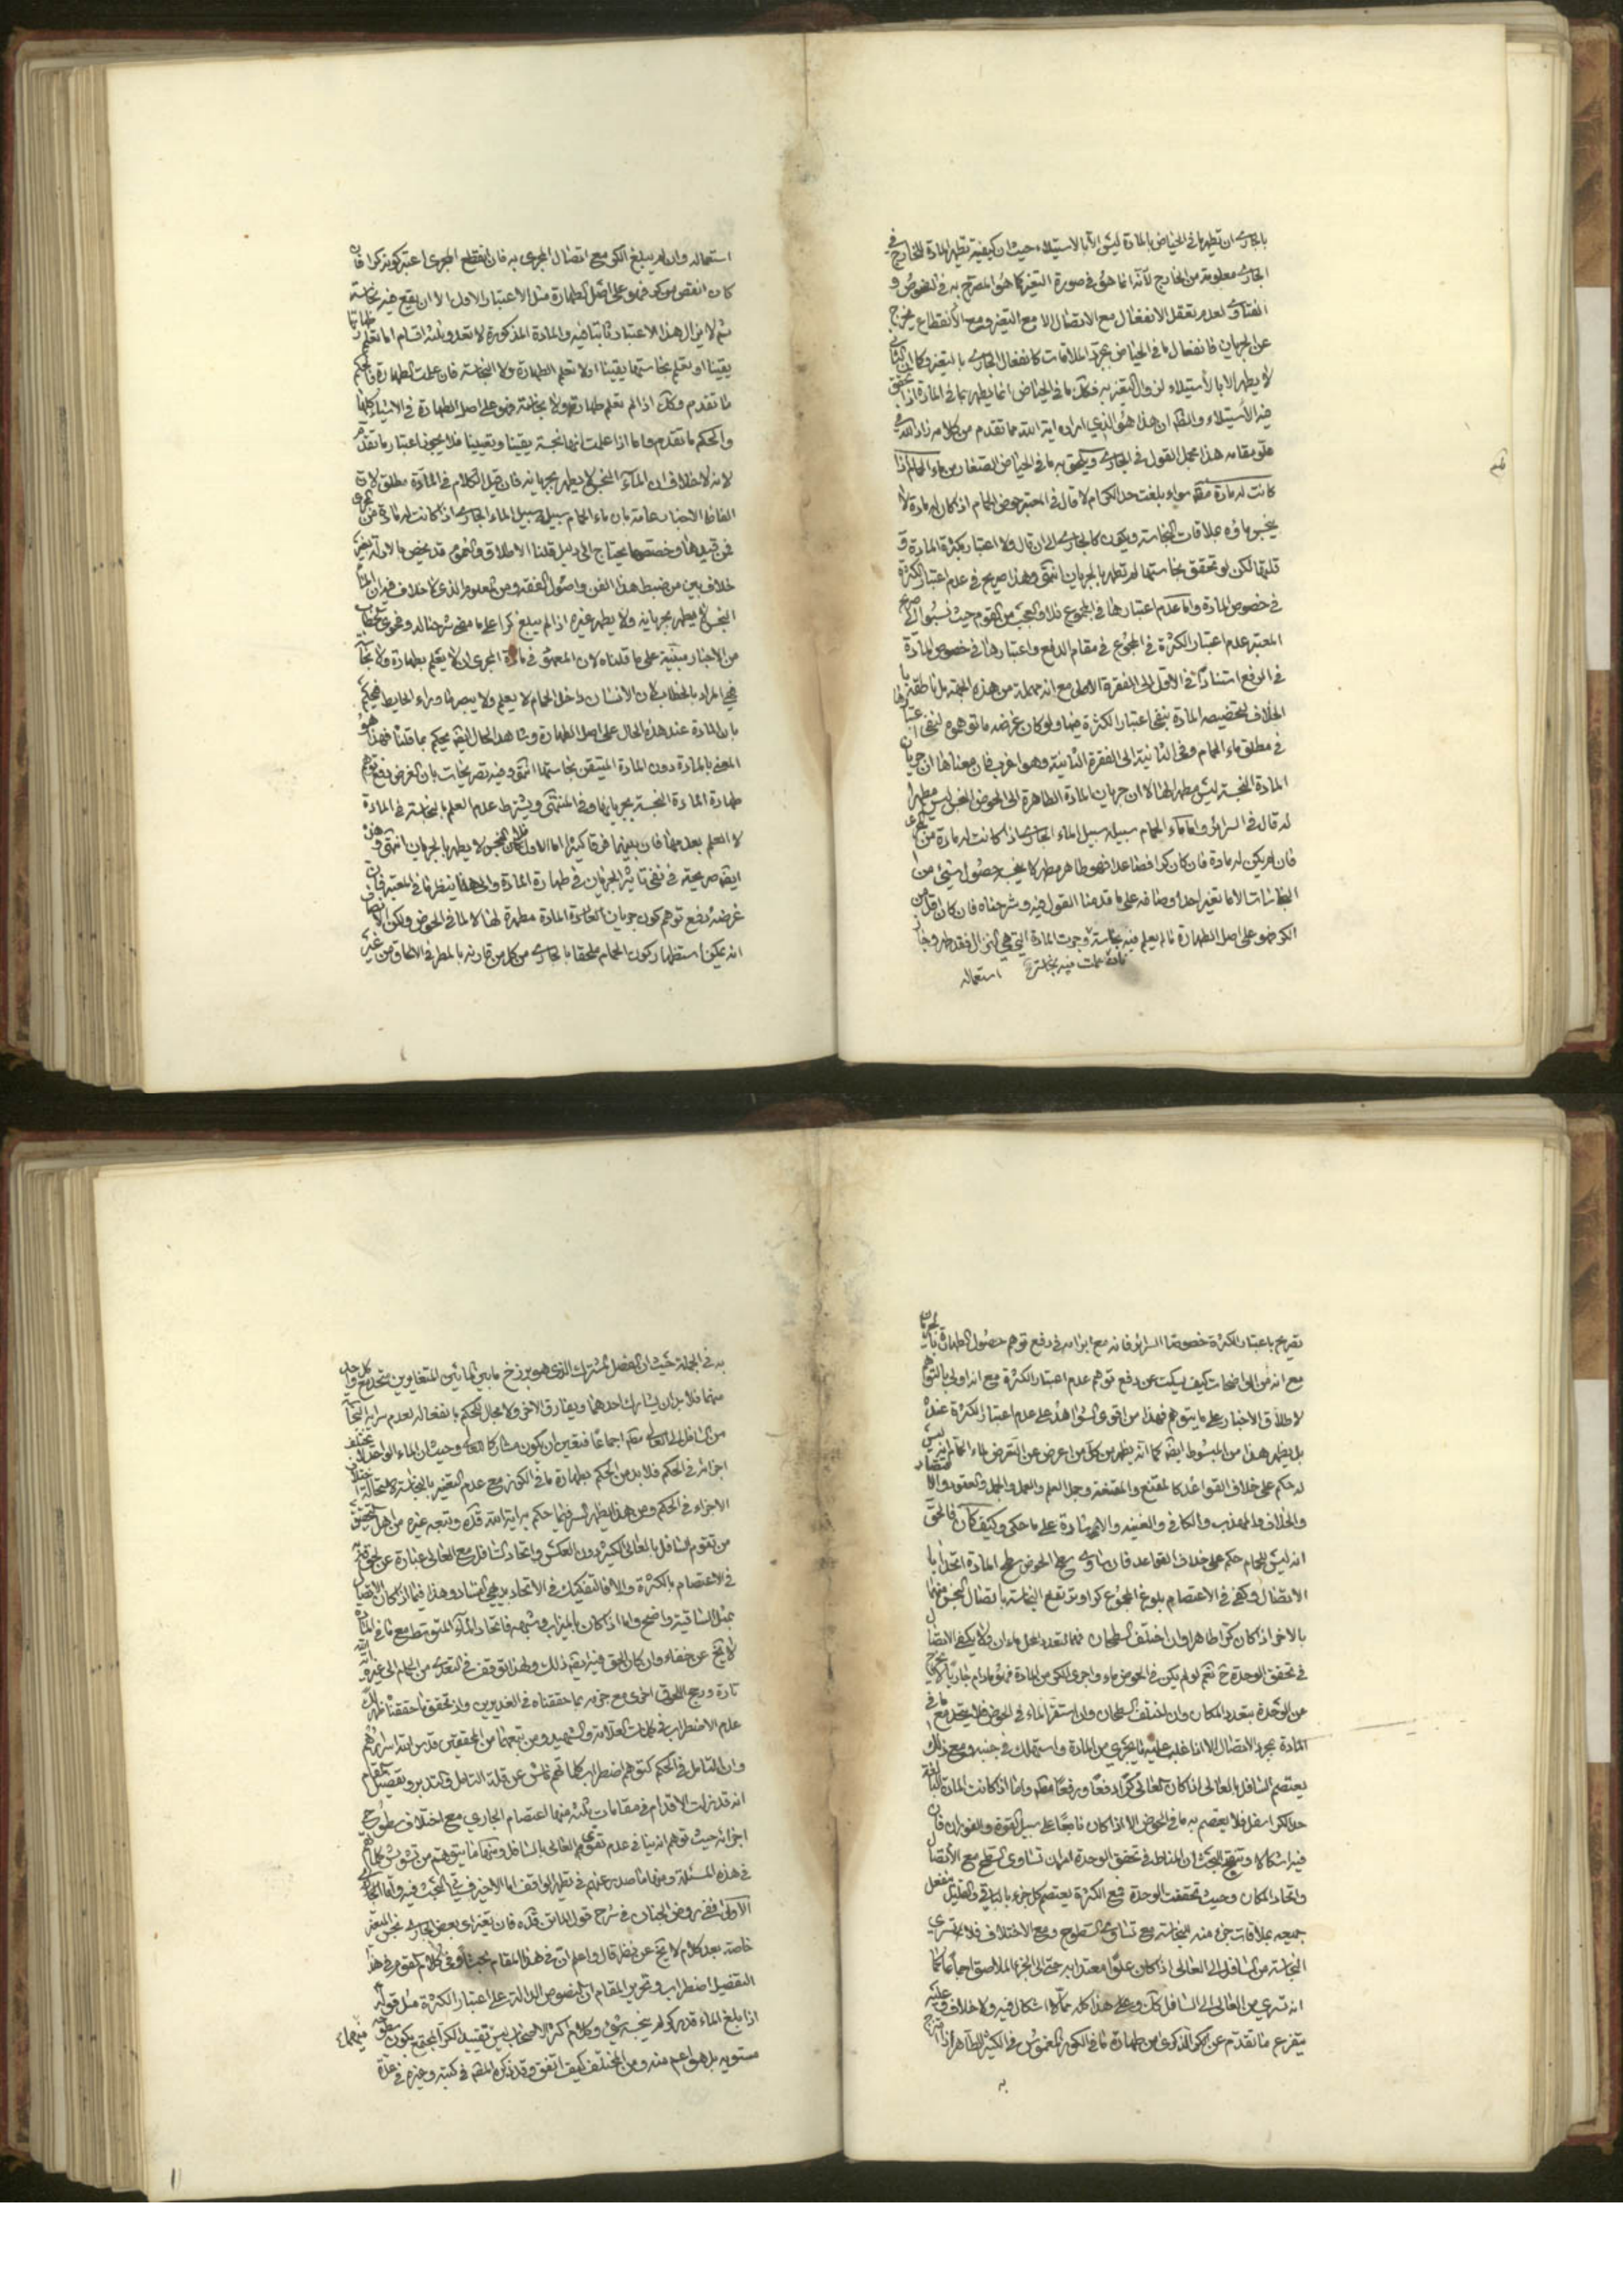 بالجاري ان تطهير ما في الحياض بالمادة ليس الا بالاستيلاء حيث ان كيفية تطهير المادة للخارج في
الجاري معلومة من الخارج لانه انما هو في صورة التغير كما هو المصرح به في النصوص و
الفتاوى لعدم تعقل الانفعال مع الاتصال الا مع التغير ومع الانقطاع يخرج
عن الجريان فانفعال ما في الحياض بمجرد الملاقات كانفعال الجاري بالتغير وكما ان الثاني
لا يطهر الا بالاستيلاء لزوال التغير به فكك ما في الحياض انما يطهر بما في المادة اذا تحقق
فيه الاستيلاء والظ ان هذا هو الذي اراده ايته الله مما تقدم من كلامه زاد الله في
علو مقامه هذا مجمل القول في الجاري ويلحق به ما في الحياض الصغار من ماء الحمام اذا
كانت له مادة سواء بلغت حد الكر ام لا قال في المعتبر حوض الحمام اذا كان له مادة لا
ينجس ماؤه بملاقات النجاسة ويكون كالجاري الى ان قال ولا اعتبار بكثرة المادة و
قلتها لكن لو تحقق نجاستها لم تطهر بالجريان انتهى وهذا صريح في عدم اعتبار الكثرة
في خصوص المادة واما عدم اعتبارها في المجموع فلا والعجب من القوم حيث نسبوا الى صريح
المعتبر عدم اعتبار الكثرة في المجموع في مقام الدفع واعتبارها في خصوص المادة
في الرفع استنادا في الاول الى الفقرة الاولى مع انه مهملة من هذه الجهة بل ناطقة بالخلاف
لتخصيصه المادة بنفي اعتبار الكثرة فيها ولو كان غرضه ما توهموه لنفى اعتبارها
في مطلق ماء الحمام وفي الثانية الى الفقرة الثانية وهو اغرب فان معناها ان جريان
المادة النجسة ليس مطهرا لها لا ان جريان المادة الطاهرة الى الحوض النجس ليس مطهرا
له قال في السرائر واما ماء الحمام سبيله سبيل الماء الجاري اذا كانت له مادة من المجرى
فان لم يكن له مادة فان كان كرا فصاعدا فهو طاهر مطهر لا ينجسه حصول شيء من
النجاسات الا ما تغير احد اوصافه على ما قدمنا القول فيه وشرحناه فان كان اقل من
الكر فهو على اصل الطهارة ما لم يعلم فيه نجاسة وجرت المادة التي هي البزال فقد طهر وجاز
فان علمت فيه نجاسة استعماله
استعماله وان لم يبلغ الكر مع اتصال المجرى به فان انقطع المجرى اعتبر كونه كرا فان
كان انقص من كر فهو على اصل الطهارة مثل الاعتبار الاول الا ان يقع فيه نجاسة
ثم لا يزال هذا الاعتبار ثابتا فيه والمادة المذكورة لا تعدو ثلثة اقسام اما تعلم طهارتها
يقينا او تعلم نجاستها يقينا او لا تعلم الطهارة ولا النجاسة فان علمت الطهارة فالحكم
ما تقدم وكك اذا لم تعلم طهارة ولا نجاسة فهو على اصل الطهارة في الاشياء كلها
والحكم ما تقدم واما اذا علمت انها نجسة يقينا فلا يجوز اعتبار ما تقدم
لانه لا خلاف ان الماء النجس لا يطهر بجريانه فان قيل الكلام في المادة مطلق لان
الفاظ الاخبار عامة بان ماء الحمام سبيله سبيل الماء الجاري اذا كانت له مادة من المجرى
فمن قيدها وخصصها يحتاج الى دليل قلنا الاطلاق والعموم قد يخص بالادلة بغير
خلاف بين من ضبط هذا الفن واصول الفقه ومن المعلوم الذي لا خلاف فيه ان الماء
النجس لا يطهر بجريانه ولا يطهر غيره اذا لم يبلغ كرا على ما مضى شرحنا له وفحوى الخطاب
من الاخبار مبنية على ما قلناه لان المعهود في مادة المجرى ان لا يعلم بطهارة ولا نجاسة
فهي المراد بالخطاب لان الانسان داخل الحمام لا يعلم ولا يبصر ما وراء الحايط فيحكم
بان المادة عند هذه الحال على اصل الطهارة وشاهد الحال ايضا يحكم بما قلنا فهذا هو
المعنى بالمادة دون المادة المتيقن نجاستها انتهى وفيه تصريحات بان الغرض دفع توهم
طهارة المادة النجسة بجريانها وفي المنتهى ويشترط عدم العلم بالنجاسة في المادة
لا العلم بعدمها فان بينهما فرقا كثيرا اما الاول فلان النجس لا يطهر بالجريان انتهى وهذه
ايضا صريحة في نفي تاثير الجريان في طهارة المادة والى هذا ينظر ما في المعتبر فان
غرضه دفع توهم كون جريان المادة مطهرة لها لا لما في الحوض ولكن الانصاف
انه يمكن استظهار كون الحمام ملحقا بالجاري من كل من قارنه بالمطر في الالحاق من غير
تصريح باعتبار الكثرة خصوصا السرائر فانه مع ابرامه في دفع توهم حصول الطهارة بالجريان
مع انه من الواضحات كيف يسكت عن دفع توهم عدم اعتبار الكثرة مع انه اولى بالتوهم
لاطلاق الاخبار على ما يتوهم فهذا من اقوى الشواهد على عدم اعتبار الكثرة عنده
بل يظهر هذا من المبسوط ايضا كما انه يظهر من كل من اعرض عن التعرض لماء الحمام انه ليس
له حكم على خلاف القواعد كالمقنع والمقنعة وجمل العلم والعمل والجمل والعقود والاقتصاد
والخلاف والمهذب والكافي والغنية والاشارة على ما حكى وكيف كان فالحق
انه ليس للحمام حكم على خلاف القواعد فان تساوى سطح الحوض سطح المادة اتحدا با
لاتصال وكفى في الاعتصام بلوغ المجموع كرا وترتفع النجاسة باتصال النجس منهما
بالاخر اذا كان كرا طاهرا وان اختلف السطحان فمع تعدد المحل ماءان ولا يكفي الاتصال
في تحقق الوحدة ح نعم لو لم يكن في الحوض ماء واجرى الكر من المادة فهو مادام جاريا لا يخرج
عن الوحدة بتعدد المكان وان اختلف السطحان وان استقر الماء في الحوض فلا يتحد مع ما في
المادة بمجرد الاتصال الا اذا غلب عليه ما يجري من المادة واستهلك في جنبه ومع ذلك
يعتصم السافل بالعالي اذا كان العالي كرا دفعا ورفعا واما اذا كانت المادة البالغة
حد الكر اسفل فلا يعتصم به ما في الحوض الا اذا كان نابعا على سبيل القوة والفوران فان
فيه اشكالا وتنقيح البحث ان المناط في تحقق الوحدة امران تساوي السطح مع الاتصال
واتحاد المكان وحيث تحققت الوحدة فمع الكثرة يعتصم كل جزء بالباقي والقليل ينفعل
جميعه بملاقات جزء منه للنجاسة مع تساوي السطوح ومع الاختلاف فلا تسري
النجاسة من السافل الى العالي اذا كان علوا معتدا به حتى الى الجزء الملاصق اجماعا كما
انه تسري من العالي الى السافل كك وعلى هذا كله مما لا اشكال فيه ولا خلاف وعليه
يتفرع ما تقدم عن الذكرى من طهارة ما في الكوز المغموس في الكثير الطاهر اذا
به
به في الجملة حيث ان الفصل المشترك الذي هو برزخ ما بين المائين المتغايرين متحد مع كل واحد
منهما فلا بد ان يشارك احدهما ويفارق الاخر ولا مجال للحكم بانفعاله لعدم سراية النجاسة
من السافل الى العالي اجماعا فتعين ان يكون مشاركا للعالي وحيث ان الماء الواحد لا يختلف
اجزائه في الحكم فلا بد من الحكم بطهارة ما في الكوز مع عدم التغير بالنجاسة لاستحالة اختلاف
الاجزاء في الحكم ومن هذا يظهر السر فيما حكم به اية الله قده وتبعه غيره من اهل التحقيق
من تقوم السافل بالعالي الكثير دون العكس واتحاد السافل مع العالي عبارة عن
في الاعتصام بالكثرة والا فالتفكيك في الاتحاد بديهي الفساد وهذا فيما اذا كان الاتصال
بمثل الساقية واضح واما اذا كان بالميزاب وشبهه فاتحاد الماء المتوسط مع ما في المادة
لا يخ عن خفاء وان كان الحق فيه ايضا ذلك ولهذا توقف في التعدي من الحمام الى غيره اية الله
تارة ورجح اللحوق اخرى مع جزمه بما حققناه في الغديرين واذ تحقق ما حققنا ظهر لك
عدم الاضطراب في كلمات العلامة والشهيد ومن تبعهما من المحققين قدس الله اسرارهم
وان التامل في الحكم كتوهم اضطراب كلماتهم ناش عن قلة التامل والتدبر وتفصيل المقام
انه قد زلت الاقدام في مقامات ثلثة منها اعتصام الجاري مع اختلاف سطوح
اجزائه حيث توهم انه ينافي عدم تقوي العالي بالسافل ومنها ما يتوهم من تشويش كلماتهم
في هذه المسئلة ومنها ما صدر عنهم في تطهير الواقف اما الاخير فسياتي البحث فيه واما
الاولى ففي روض الجنان في شرح قول الماتن قده فان تغير بعض الجاري نجس المتغير
خاصة بعد كلام لا يخ عن نظر قال واعلم ان في هذا المقام بحثا وفي كلام القوم في هذا
التفصيل اضطراب وتحرير المقام ان النصوص الدالة على اعتبار الكثرة مثل قوله
اذا بلغ الماء قدر كر لم ينجسه شيء وكلام اكثر الاصحاب ليس فيهما تقييد الكر المجتمع بكون سطوحه
مستوية بل هو اعم منه ومن المختلف كيف اتفق وقد ذكره المص في كتبه وغيره في عدة